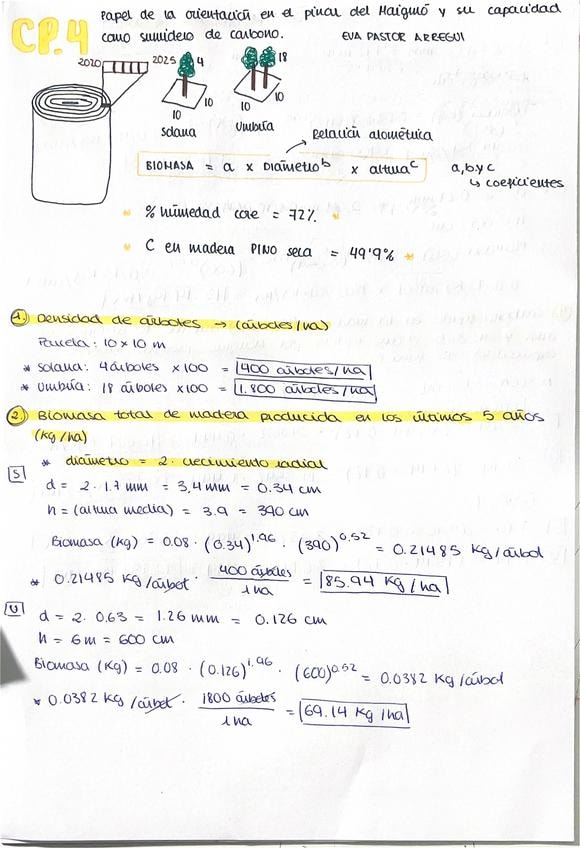 CP.4
Papel de la orientación en el pinar del Maigmó y su capacidad
como sumidero de carbono. EVA PASTOR ARREGUI
2020 2025 4 18
10 10 10 10
Solana Umbría
Relación alométrica
BIOMASA = a x Diámetro^b x altura^c a, b y c
↳ coeficientes
* % humedad core = 72% *
* C en madera PINO seca = 49'9% *
1. Densidad de árboles → (árboles/ha)
Parcela: 10 x 10 m
* Solana: 4 árboles x100 = 400 árboles/ha
* Umbría: 18 árboles x100 = 1.800 árboles/ha
2. Biomasa total de madera producida en los últimos 5 años
(kg/ha)
* diámetro = 2 · crecimiento radial
S
d = 2 · 1.7 mm = 3,4 mm = 0.34 cm
h = (altura media) = 3.9 = 390 cm
Biomasa (kg) = 0.08 · (0.34)^1.96 · (390)^0.52 = 0.21485 kg/árbol
* 0.21485 kg/árbol · 400 árboles / 1 ha = 85.94 kg/ha
U
d = 2 · 0.63 = 1.26 mm = 0.126 cm
h = 6 m = 600 cm
Biomasa (kg) = 0.08 · (0.126)^1.96 · (600)^0.52 = 0.0382 kg/árbol
* 0.0382 kg/árbol · 1800 árboles / 1 ha = 69.14 kg/ha